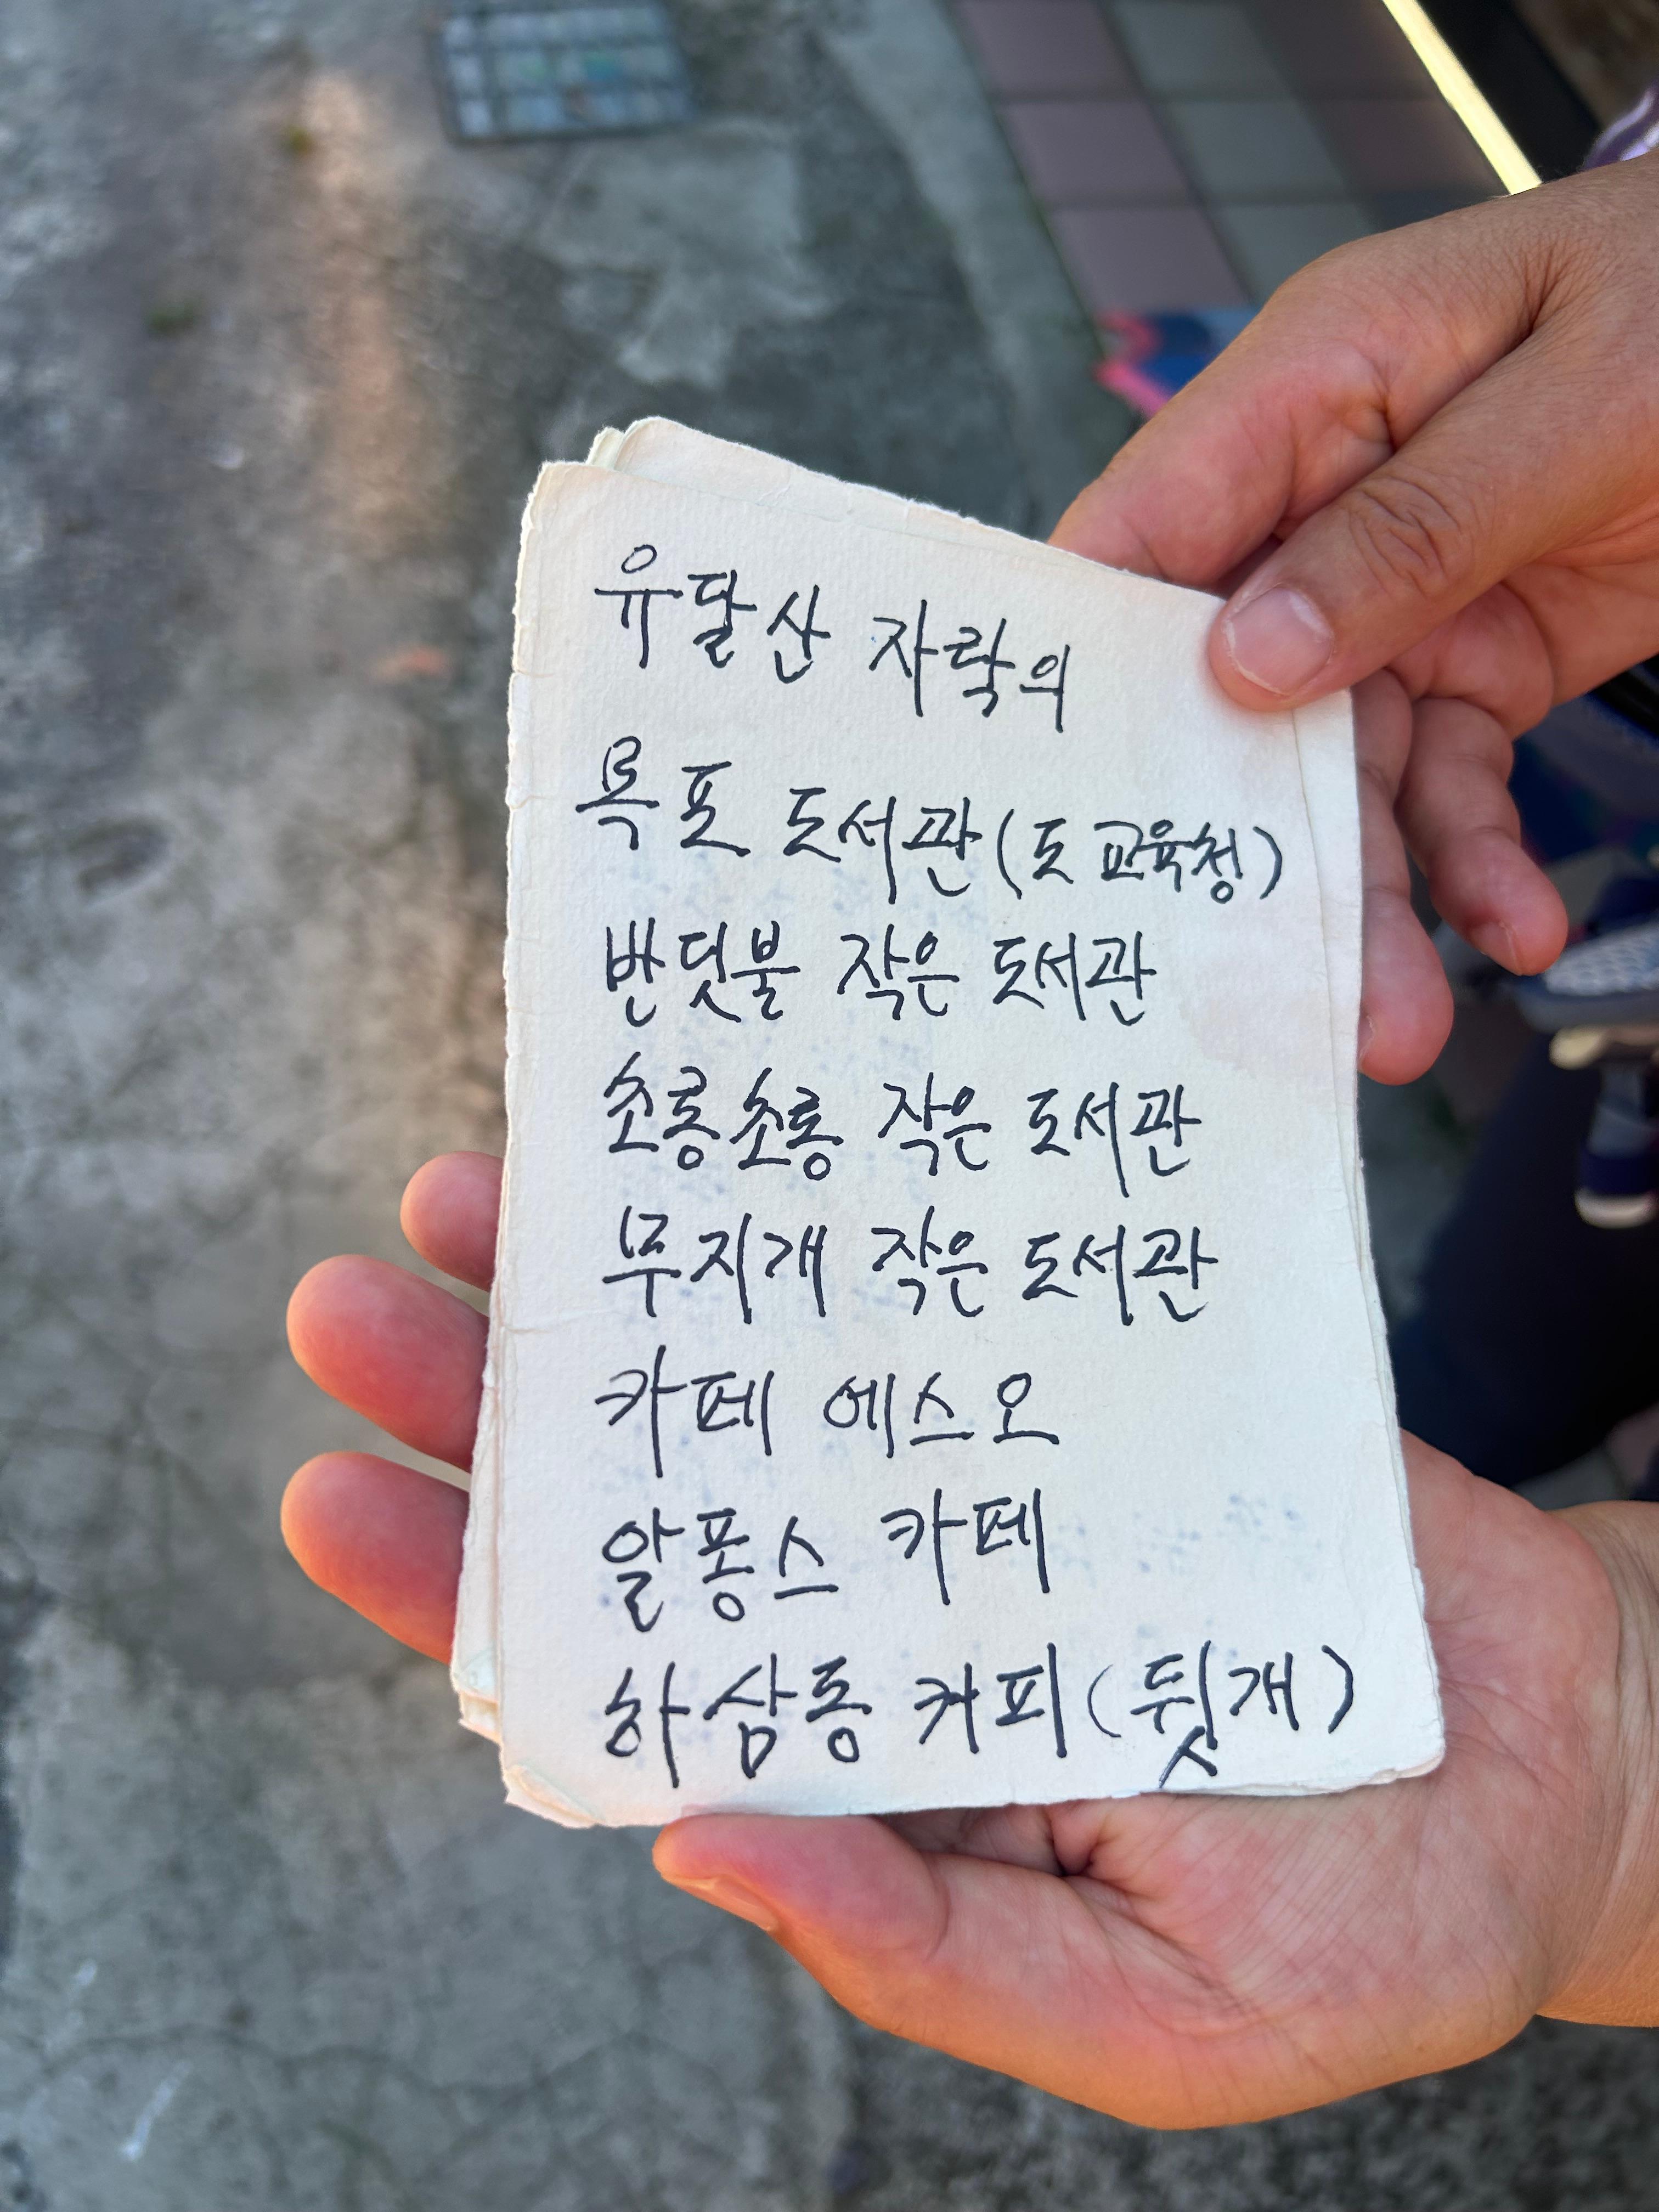 유달산 자락의
목포 도서관(도 교육청)
반딧불 작은 도서관
초롱초롱 작은 도서관
무지개 작은 도서관
카페 에스오
알퐁스 카페
하삼동 커피(뒷개)